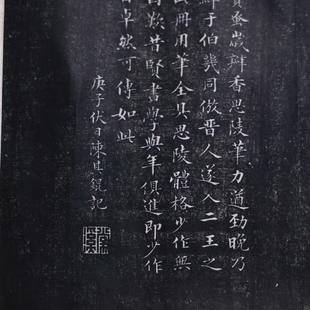 蚤歲辦香思陵筆力遒勁晚乃
鮮于伯幾同倣晉人遂入二王之
冊用筆全具思陵體格少作無
歎昔賢書學與年俱進即少作
卓然可傳如此
庚子伏日陳其錕記